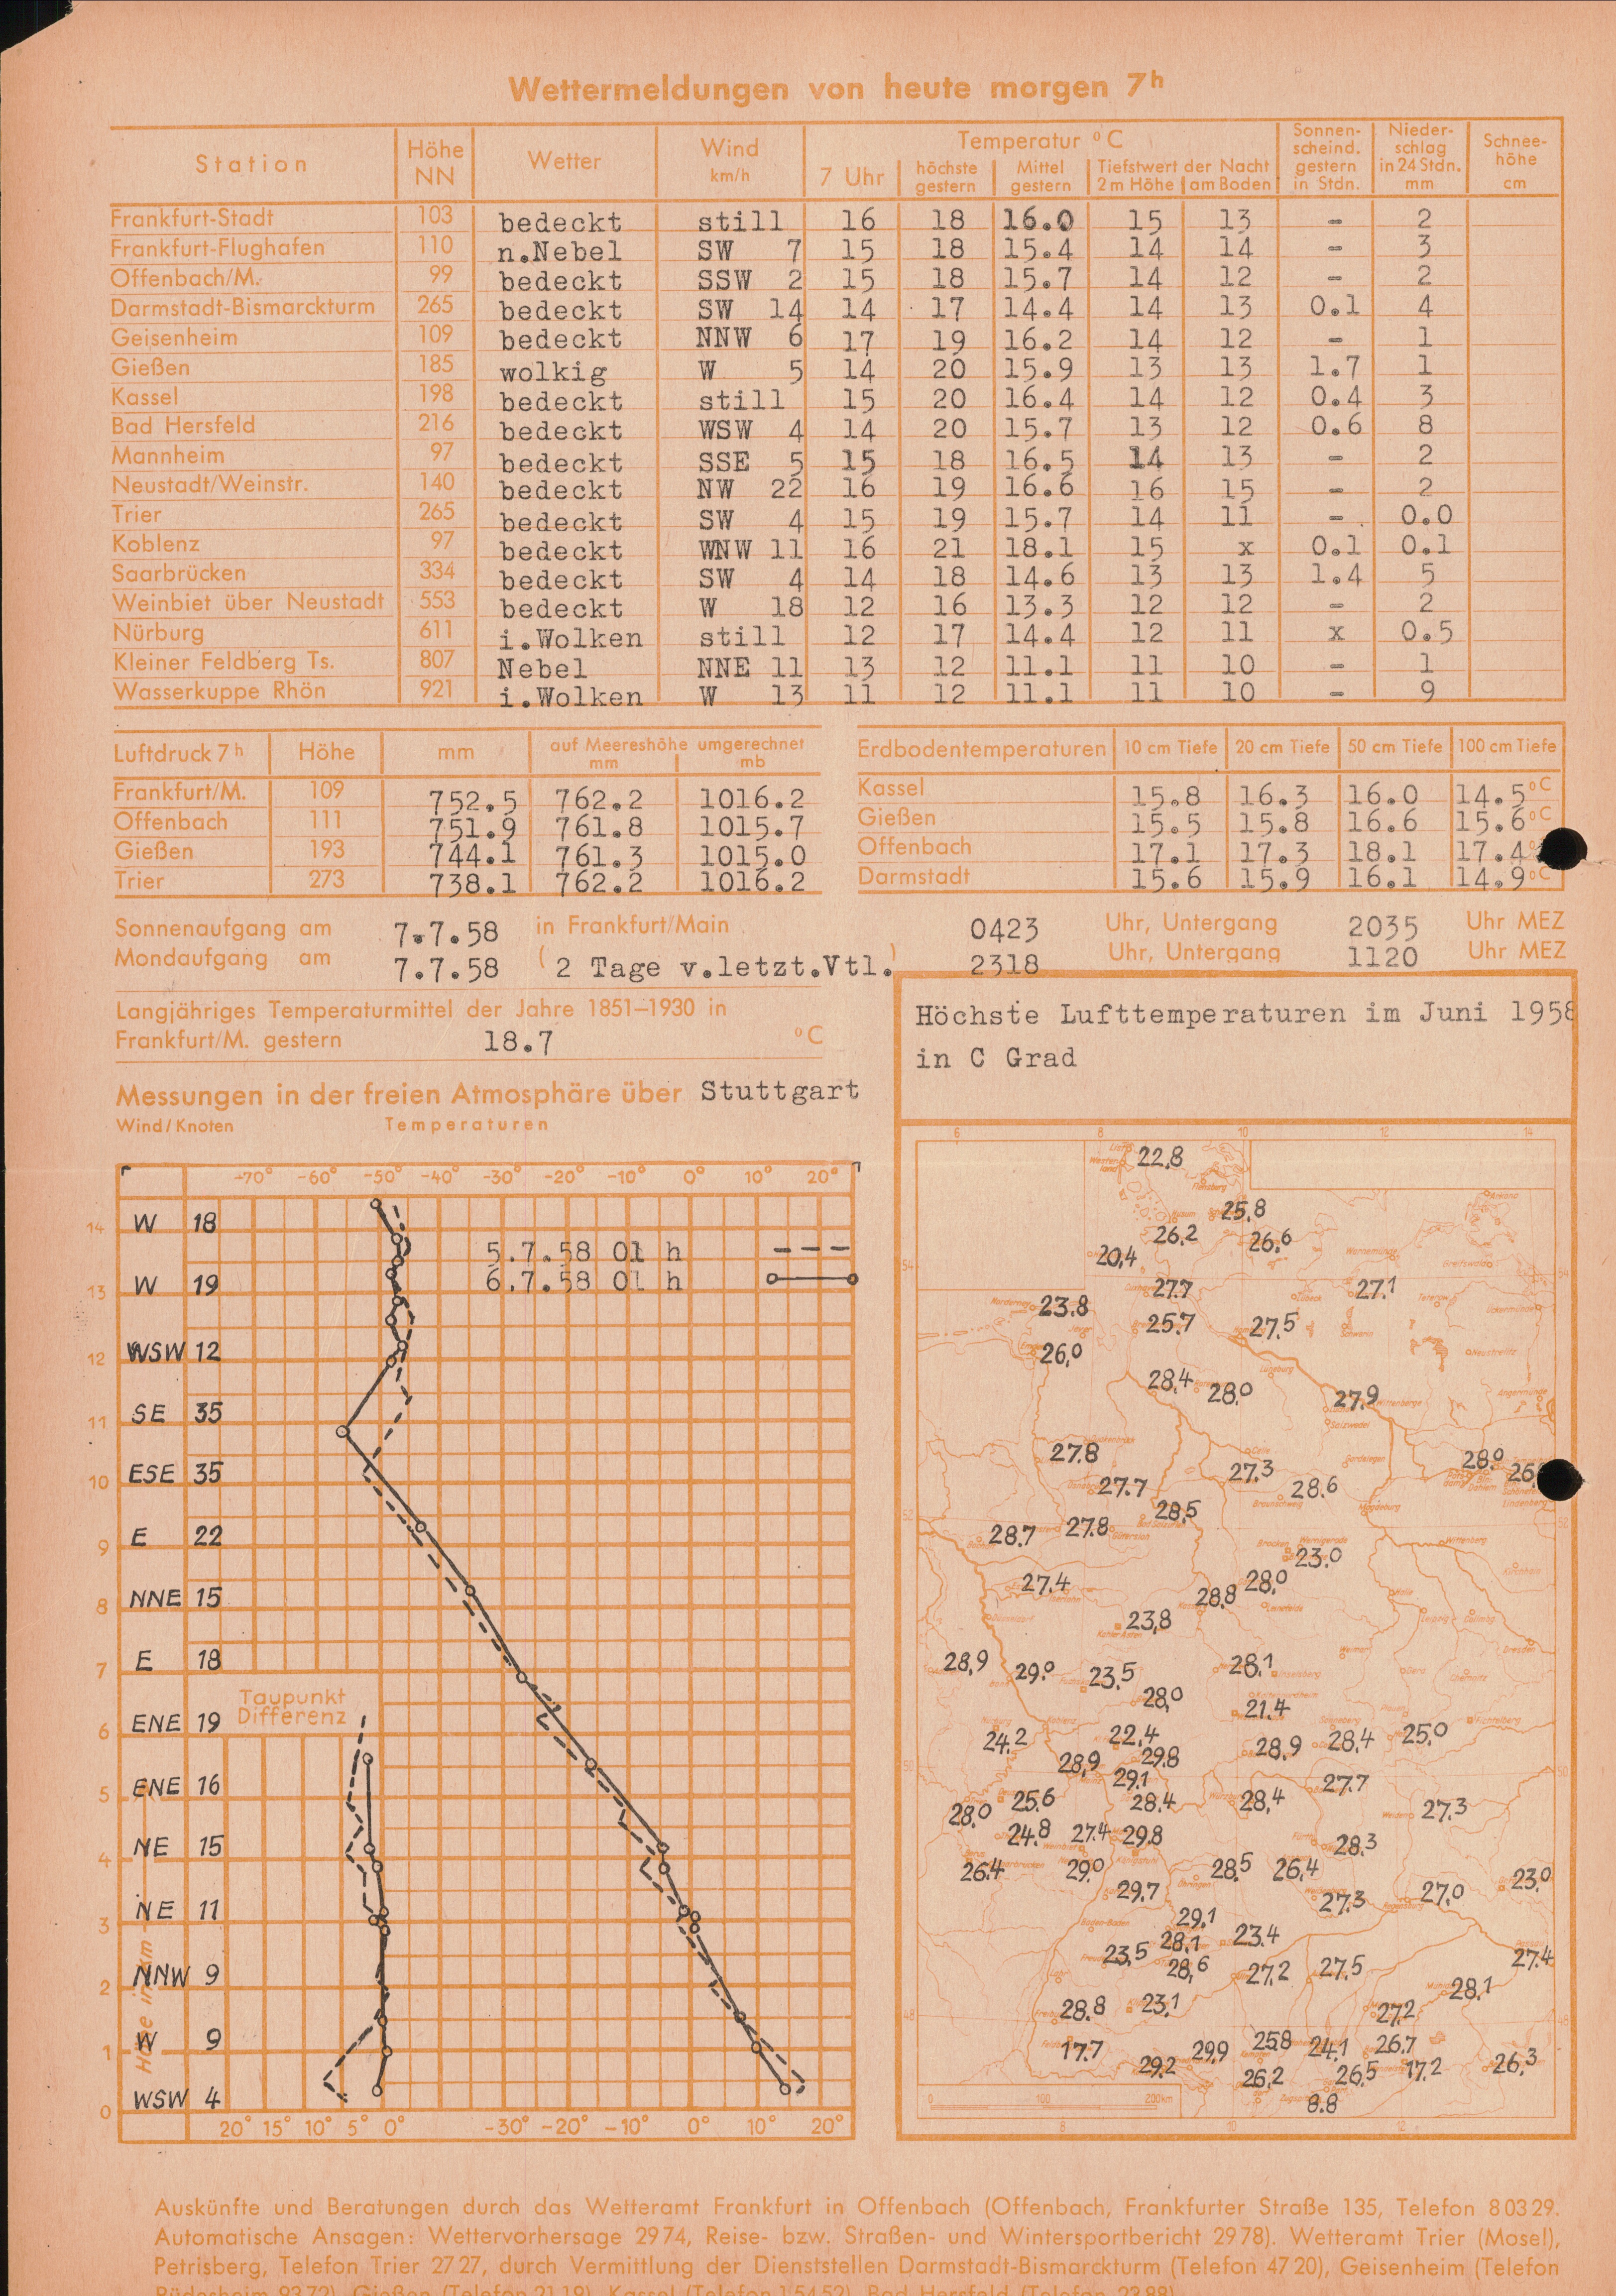 Wettermeldungen von heute morgen 7h
Station Höhe NN Wetter Wind km/h Temperatur °C Sonnenscheind. gestern in Stdn. Niederschlag in 24 Stdn. mm Schneehöhe cm
7 Uhr höchste gestern Mittel gestern Tiefstwert der Nacht 2 m Höhe am Boden
Frankfurt-Stadt 103 bedeckt still 16 18 16.0 15 13 - 2
Frankfurt-Flughafen 110 n.Nebel SW 7 15 18 15.4 14 14 - 3
Offenbach/M. 99 bedeckt SSW 2 15 18 15.7 14 12 - 2
Darmstadt-Bismarckturm 265 bedeckt SW 14 14 17 14.4 14 13 0.1 4
Geisenheim 109 bedeckt NNW 6 17 19 16.2 14 12 - 1
Gießen 185 wolkig W 5 14 20 15.9 13 13 1.7 1
Kassel 198 bedeckt still 15 20 16.4 14 12 0.4 3
Bad Hersfeld 216 bedeckt WSW 4 14 20 15.7 13 12 0.6 8
Mannheim 97 bedeckt SSE 5 15 18 16.5 14 13 - 2
Neustadt/Weinstr. 140 bedeckt NW 22 16 19 16.6 16 15 - 2
Trier 265 bedeckt SW 4 15 19 15.7 14 11 - 0.0
Koblenz 97 bedeckt WNW 11 16 21 18.1 15 x 0.1 0.1
Saarbrücken 334 bedeckt SW 4 14 18 14.6 13 13 1.4 5
Weinbiet über Neustadt 553 bedeckt W 18 12 16 13.3 12 12 - 2
Nürburg 611 i.Wolken still 12 17 14.4 12 11 x 0.5
Kleiner Feldberg Ts. 807 Nebel NNE 11 13 12 11.1 11 10 - 1
Wasserkuppe Rhön 921 i.Wolken W 13 11 12 11.1 11 10 - 9
Luftdruck 7h Höhe mm auf Meereshöhe umgerechnet mm mb
Frankfurt/M. 109 752.5 762.2 1016.2
Offenbach 111 751.9 761.8 1015.7
Gießen 193 744.1 761.3 1015.0
Trier 273 738.1 762.2 1016.2
Erdbodentemperaturen 10 cm Tiefe 20 cm Tiefe 50 cm Tiefe 100 cm Tiefe
Kassel 15.8 16.3 16.0 14.5 °C
Gießen 15.5 15.8 16.6 15.6 °C
Offenbach 17.1 17.3 18.1 17.4
Darmstadt 15.6 15.9 16.1 14.9 °C
Sonnenaufgang am 7.7.58 in Frankfurt/Main 0423 Uhr, Untergang 2035 Uhr MEZ
Mondaufgang am 7.7.58 (2 Tage v.letzt.Vtl.) 2318 Uhr, Untergang 1120 Uhr MEZ
Langjähriges Temperaturmittel der Jahre 1851–1930 in
Frankfurt/M. gestern 18.7 °C
Messungen in der freien Atmosphäre über Stuttgart
Wind/Knoten Temperaturen
-70° -60° -50° -40° -30° -20° -10° 0° 10° 20°
14 W 18
5.7.58 01 h
6.7.58 01 h
13 W 19
12 WSW 12
11 SE 35
10 ESE 35
9 E 22
8 NNE 15
7 E 18
Taupunkt
Differenz
6 ENE 19
5 ENE 16
4 NE 15
3 NE 11
2 NNW 9
1 W 9
0 WSW 4
Höhe in km
20° 15° 10° 5° 0° -30° -20° -10° 0° 10° 20°
Höchste Lufttemperaturen im Juni 1958
in C Grad
6 8 10 12 14
22.8
25.8
26.2 26.6
20.4
27.7 27.1
23.8
25.7 27.5
26.0
28.4 28.0 27.9
27.8
27.3 28.0
27.7 28.6
28.5
28.7 27.8
23.0
27.4 28.0
28.8
23.8
28.9 29.0 23.5 28.1
28.0
21.4
24.2 22.4 28.9 28.4 25.0
28.9 29.8
29.1
27.7
28.0 25.6 28.4 28.4 27.3
24.8 27.4 29.8 28.3
26.4 29.0 28.5 26.4 23.0
29.7 27.3 27.0
29.1
28.1 23.4
23.5 27.4
28.6 27.2 27.5
28.1
28.8 23.1 27.2
17.7 29.9 25.8 24.1 26.7
29.2 26.2 26.5 17.2 26.3
8.8
0 100 200 km
8 10 12
Auskünfte und Beratungen durch das Wetteramt Frankfurt in Offenbach (Offenbach, Frankfurter Straße 135, Telefon 8 03 29.
Automatische Ansagen: Wettervorhersage 29 74, Reise- bzw. Straßen- und Wintersportbericht 29 78). Wetteramt Trier (Mosel),
Petrisberg, Telefon Trier 27 27, durch Vermittlung der Dienststellen Darmstadt-Bismarckturm (Telefon 47 20), Geisenheim (Telefon
Rüdesheim 93 72), Gießen (Telefon 21 19), Kassel (Telefon 1 54 52), Bad Hersfeld (Telefon 23 88)